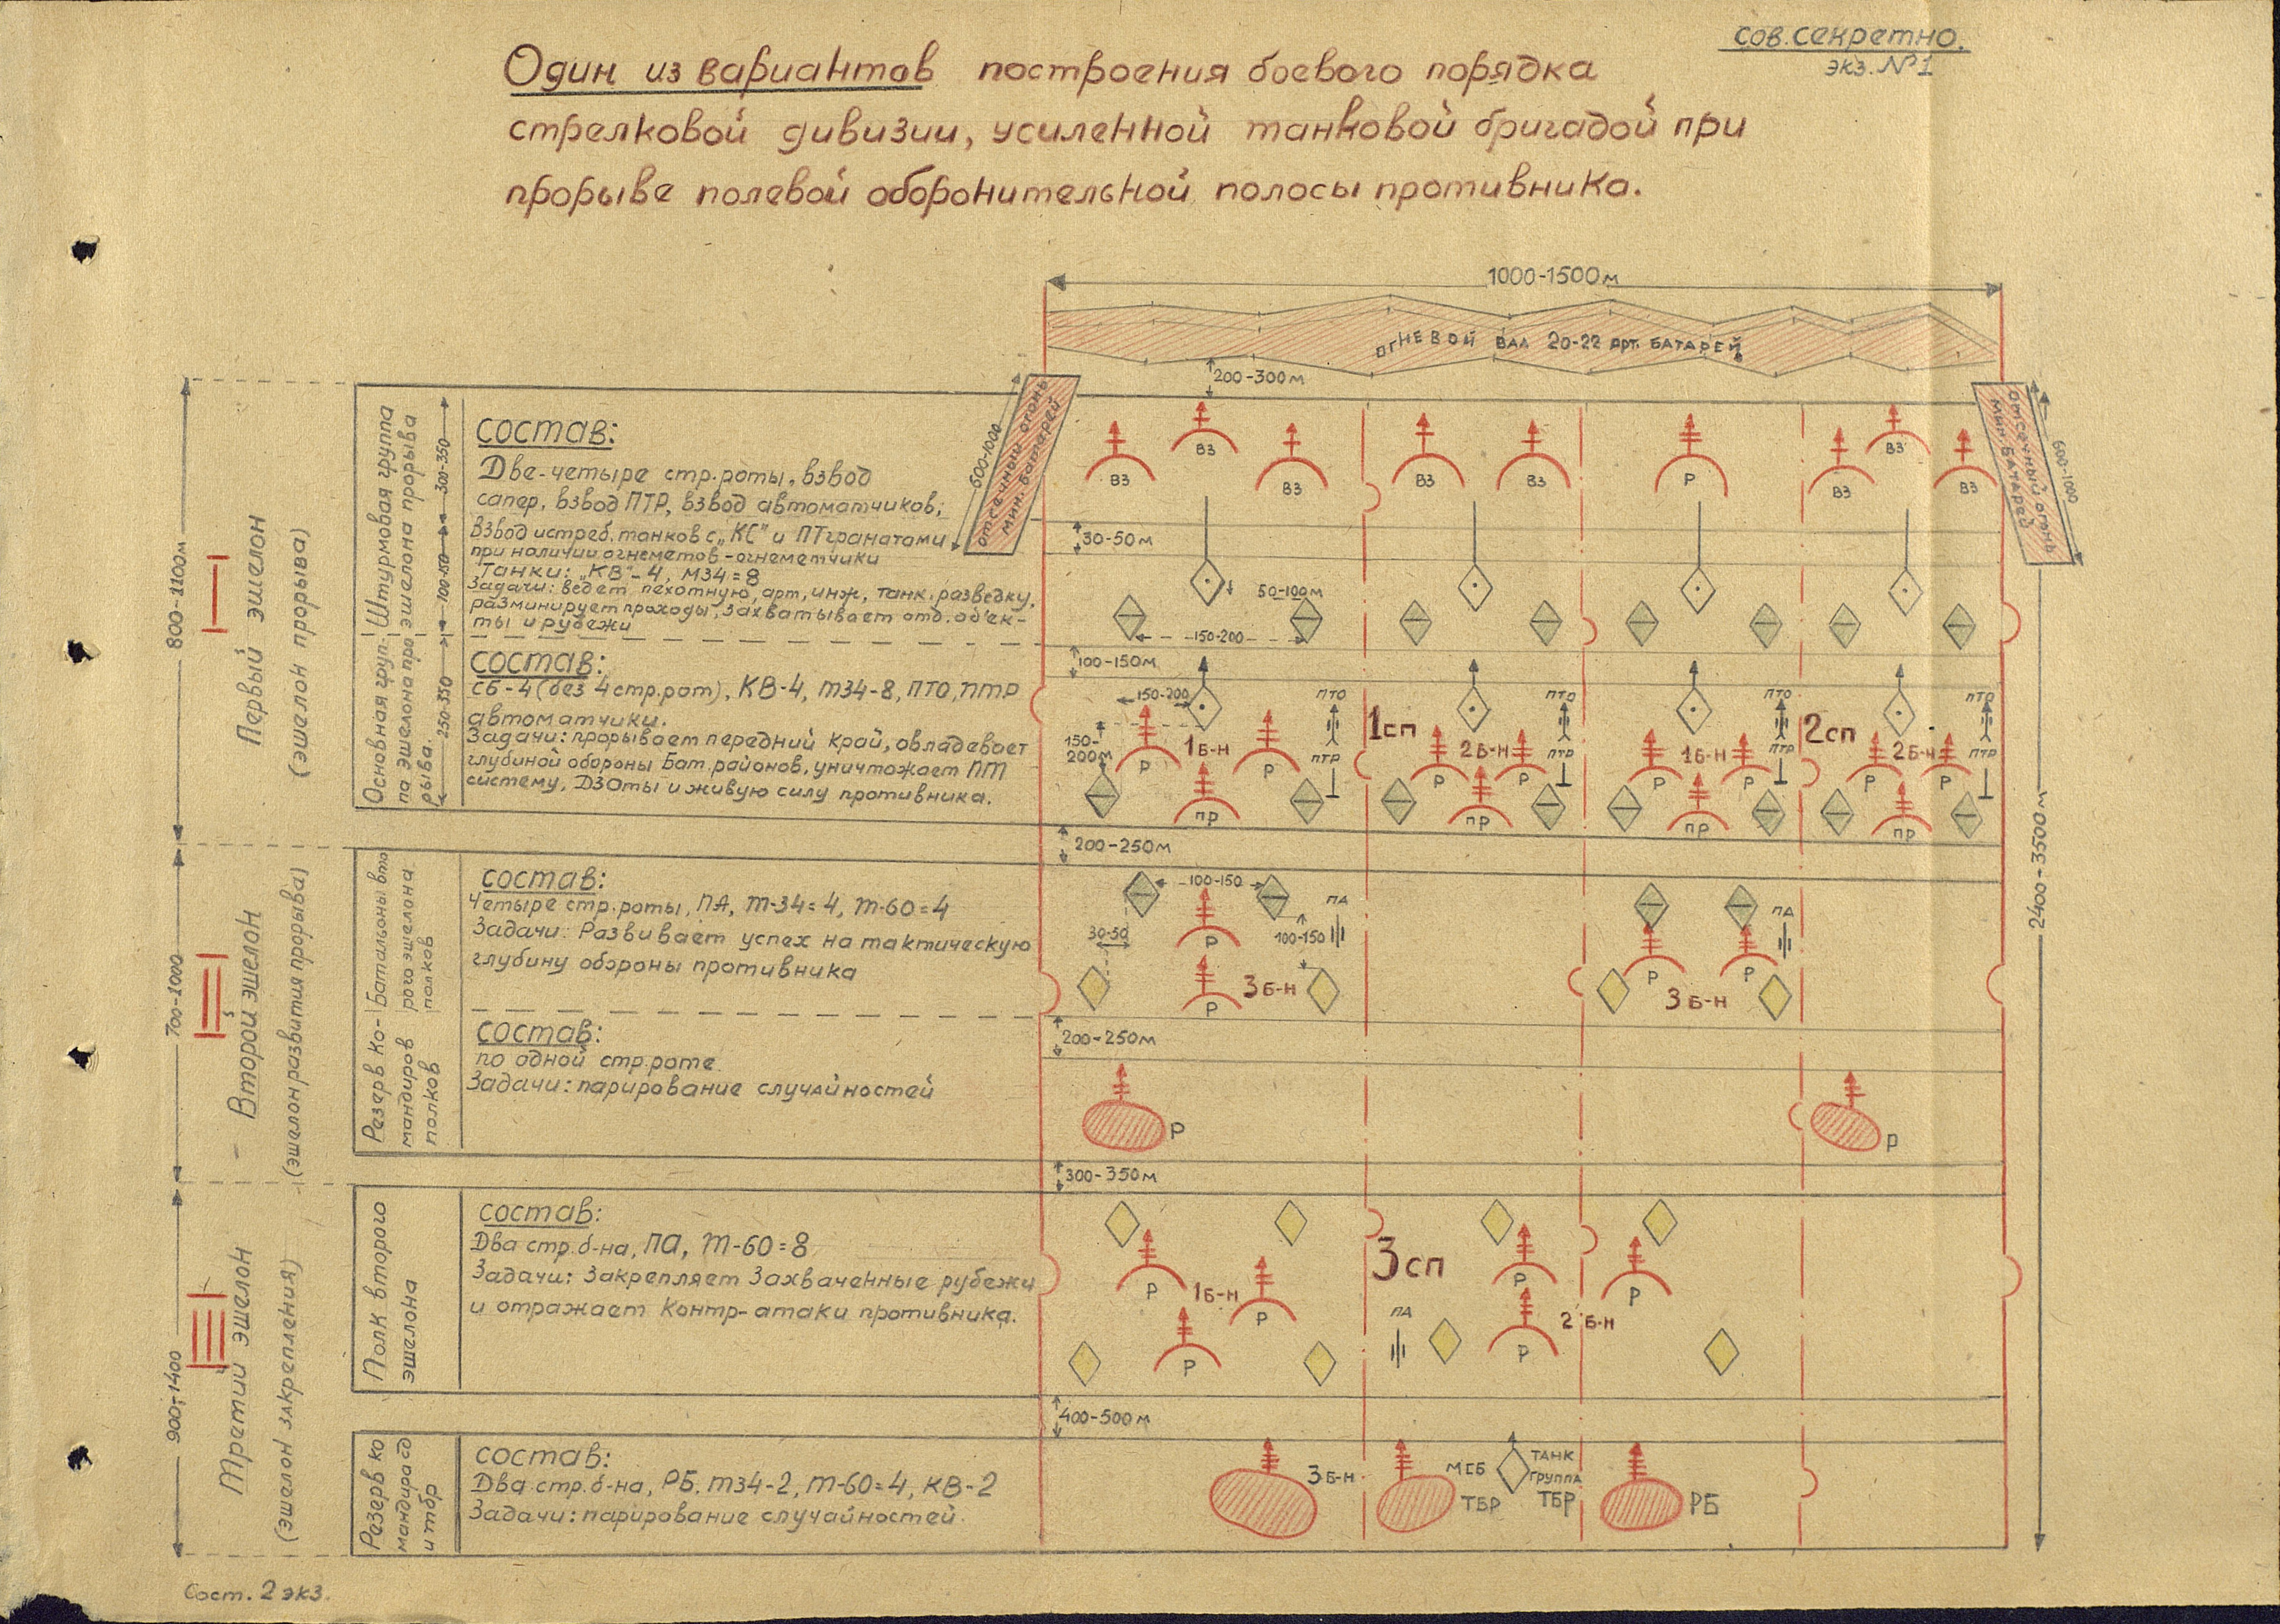 сов. секретно.
экз. №1
Один из вариантов построения боевого порядка
стрелковой дивизии, усиленной танковой бригадой при
прорыве полевой оборонительной полосы противника.
1000-1500м
огневой вал 20-22 арт. батарей
200-300м
600-1000
отсечный огонь
мин. батарей
отсечный огонь
мин. батарей
600-1000
800-1100м
Первый эшелон
(эшелон прорыва)
Штурмовая группа
эшелона прорыва
300-350
100-150
состав:
Две-четыре стр. роты, взвод
сапер, взвод ПТР, взвод автоматчиков;
взвод истреб. танков с „КС" и ПТгранатами
при наличии огнеметов-огнеметчики
Танки: „КВ"-4, М34=8
Задачи: ведет пехотную, арт, инж, танк. разведку,
разминирует проходы, захватывает отд. об'ек-
ты и рубежи
ВЗ
ВЗ
ВЗ
ВЗ
ВЗ
Р
ВЗ
ВЗ
ВЗ
30-50м
50-100м
150-200
100-150м
Основная груп-
па эшелона про
рыва.
250-350
состав:
СБ-4 (без 4 стр. рот), КВ-4, т34-8, ПТО, ПТР
автоматчики.
Задачи: прорывает передний край, овладевает
глубиной обороны бат. районов, уничтожает ПТ
систему, ДЗОты и живую силу противника.
150-200
150-
200м
Р
1 Б-Н
Р
ПР
ПТО
ПТР
1 сп
Р
2 Б-Н
Р
ПР
ПТО
ПТР
Р
1 Б-Н
Р
ПР
ПТО
ПТР
2 сп
Р
2 Б-Н
Р
ПР
ПТО
ПТР
200-250м
2400-3500м
700-1000
Второй эшелон
(эшелон развития прорыва)
Батальоны вто
рого эшелона
полков
состав:
Четыре стр. роты, ПА, т-34=4, т-60=4
Задачи: Развивает успех на тактическую
глубину обороны противника
100-150
30-50
Р
100-150
ПА
Р
3 Б-Н
Р
Р
ПА
3 Б-Н
200-250м
Резерв ко-
мандиров
полков
состав:
по одной стр. роте
Задачи: парирование случайностей
Р
Р
300-350м
900-1400
Третий эшелон
(эшелон закрепления)
Полк второго
эшелона
состав:
Два стр. б-на, ПА, т-60=8
Задачи: Закрепляет Захваченные рубежи
и отражает контр-атаки противника.
Р
1 Б-Н
Р
Р
3 сп
ПА
Р
Р
2 Б-Н
Р
400-500м
Резерв ко
мандира сд
и тбр
состав:
Два стр. б-на, РБ, т34-2, т-60=4, КВ-2
Задачи: парирование случайностей.
3 Б-Н
МСБ
ТБР
ТАНК
ГРУППА
ТБР
РБ
Сост. 2 экз.